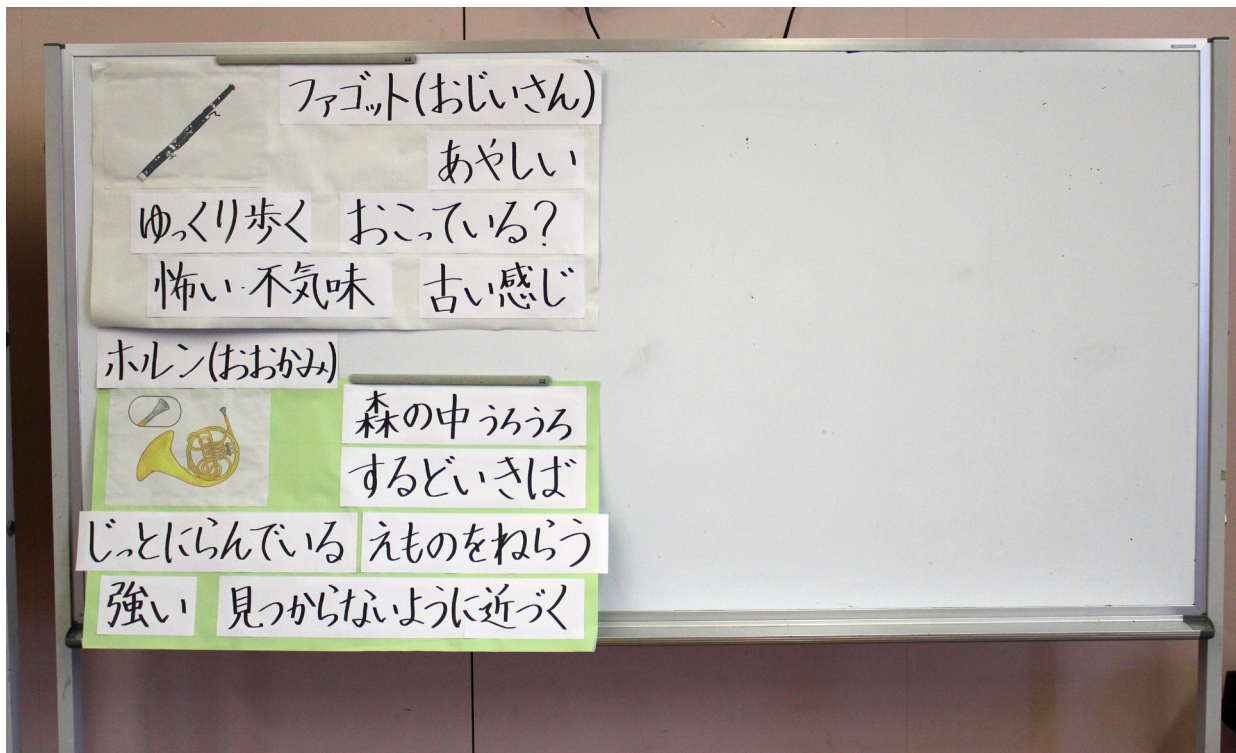 ファゴット(おじいさん)
あやしい
ゆっくり歩く おこっている?
怖い・不気味 古い感じ
ホルン(おおかみ)
森の中うろうろ
するどいきば
じっとにらんでいる えものをねらう
強い 見つからないように近づく